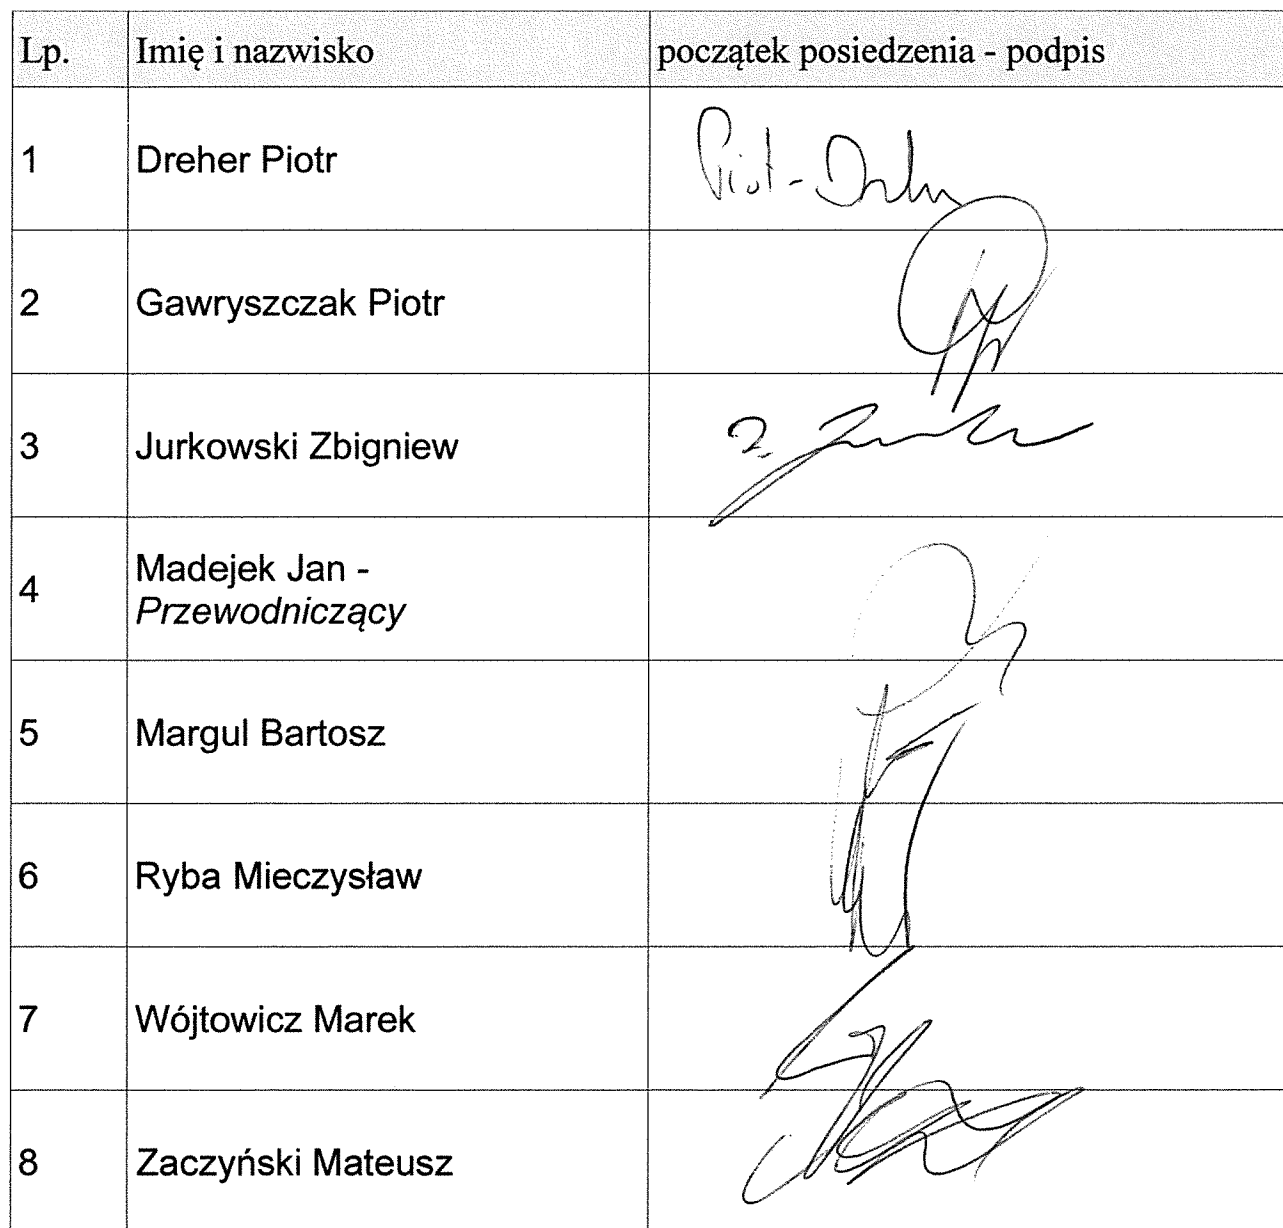 Lp. Imię i nazwisko początek posiedzenia - podpis
1 Dreher Piotr Piotr Dreher
2 Gawryszczak Piotr
3 Jurkowski Zbigniew
4 Madejek Jan -
Przewodniczący
5 Margul Bartosz
6 Ryba Mieczysław
7 Wójtowicz Marek
8 Zaczyński Mateusz